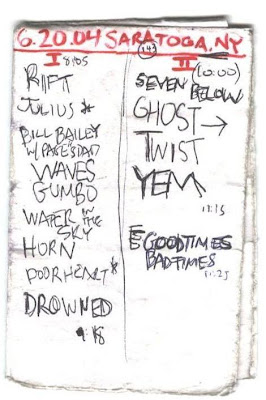 6.20.04 SARATOGA, NY
I 8:05
RIFT
JULIUS *
BILL BAILEY
W/ PAGE'S DAD
WAVES
GUMBO
WATER IN THE
SKY
HORN
POOR HEART *
DROWNED
9:18
II (10:00)
SEVEN BELOW
GHOST →
TWIST
YEM
11:15
E GOODTIMES
BADTIMES
11:25